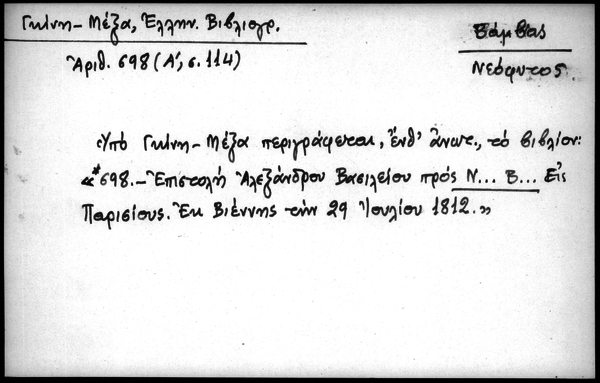 Γκίνη - Μέζα, Ἑλλην. Βιβλιογρ.
Ἀριθ. 698 (Α', σ. 114)
Βάμβας
Νεόφυτος
Ὑπό Γκίνη - Μέζα περιγράφεται, ἔνθ' ἄνωτ., τό βιβλίον:
«*698. - Ἐπιστολή Ἀλεξάνδρου Βασιλείου πρός Ν... Β... Εἰς
Παρισίους. Ἐκ Βιέννης τήν 29 Ἰουλίου 1812.»